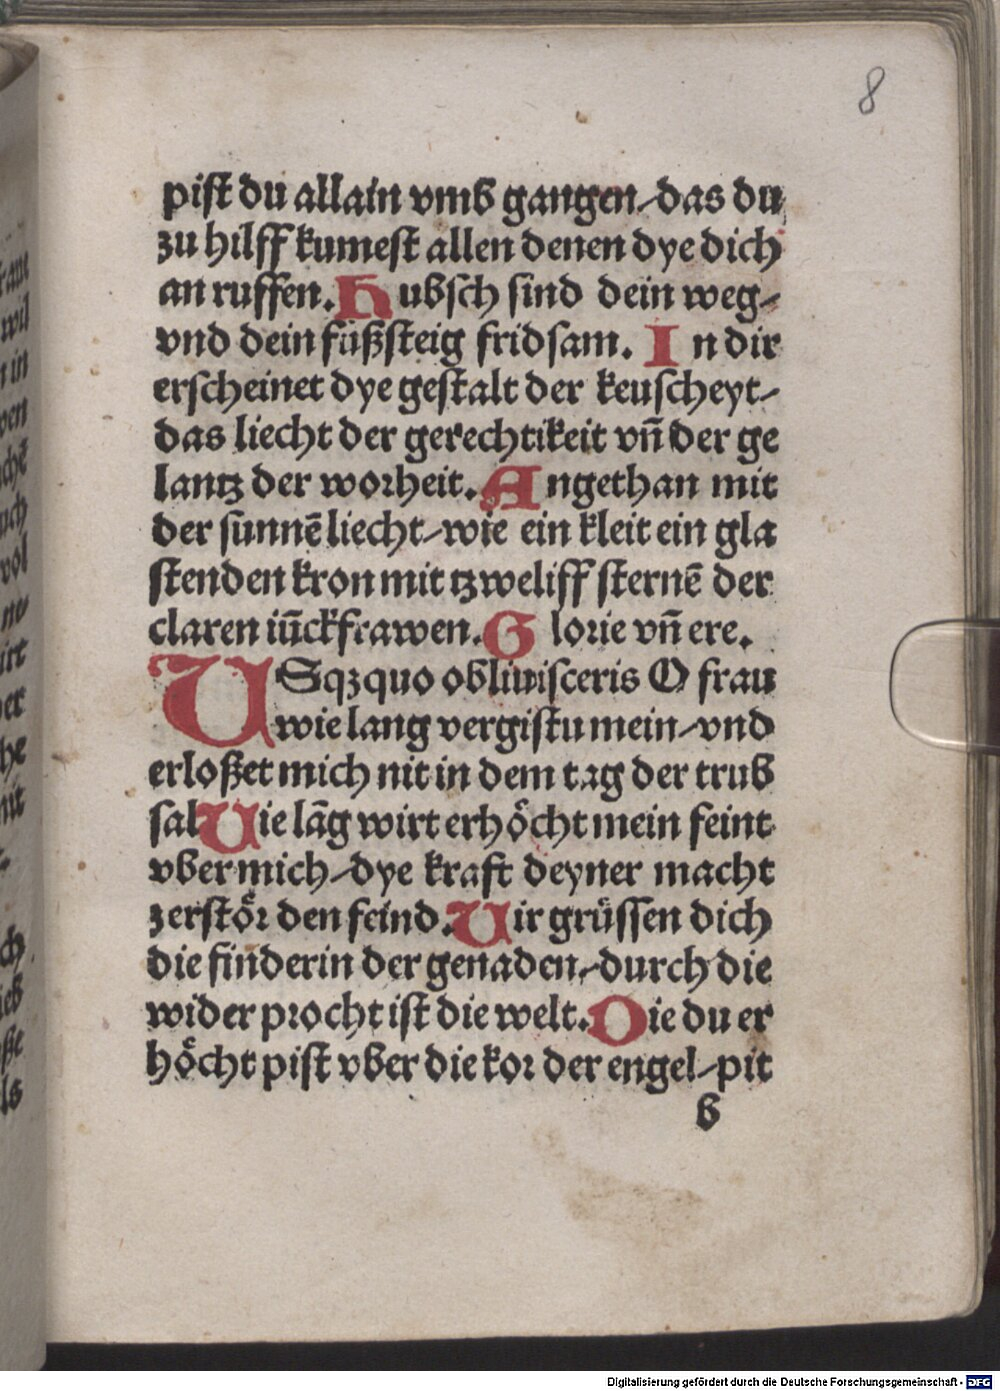 8
pist du allain vmb gangen/das du
zu hilff kumest allen denen dye dich
an ruffen. Hubsch sind dein weg/
vnd dein fůßsteig fridsam. In dir
erscheinet dye gestalt der keuscheyt/
das liecht der gerechtikeit vn̄ der ge
lantz der worheit. Angethan mit
der sunnē liecht/wie ein kleit ein gla
stenden kron mit tzweliff sternē der
claren iūckfrawen. Glorie vn̄ ere.
USqꝫ quo obliuisceris O frau
wie lang vergistu mein/vnd
erloßet mich nit in dem tag der trub
sal Wie lāg wirt erhöcht mein feint
vber mich/dye kraft deyner macht
zerstör den feind. Wir grüssen dich
die finderin der genaden/durch die
wider procht ist die welt. Die du er
höcht pist vber die kor der engel/pit
b
Digitalisierung gefördert durch die Deutsche Forschungsgemeinschaft - DFG